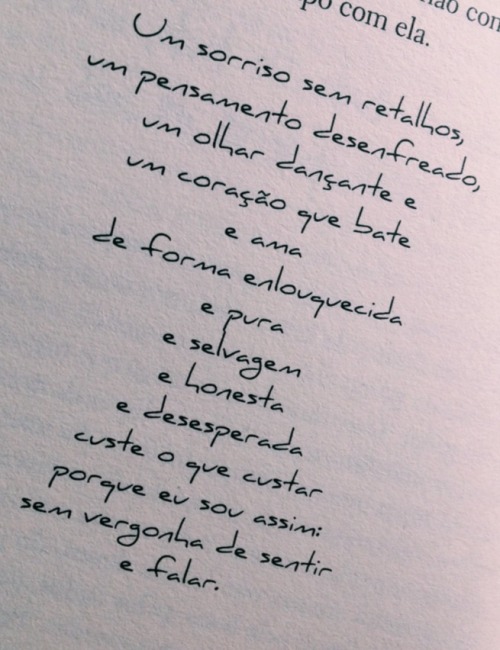 não con
po com ela.
Um sorriso sem retalhos,
um pensamento desenfreado,
um olhar dançante e
um coração que bate
e ama
de forma enlouquecida
e pura
e selvagem
e honesta
e desesperada
custe o que custar
porque eu sou assim:
sem vergonha de sentir
e falar.